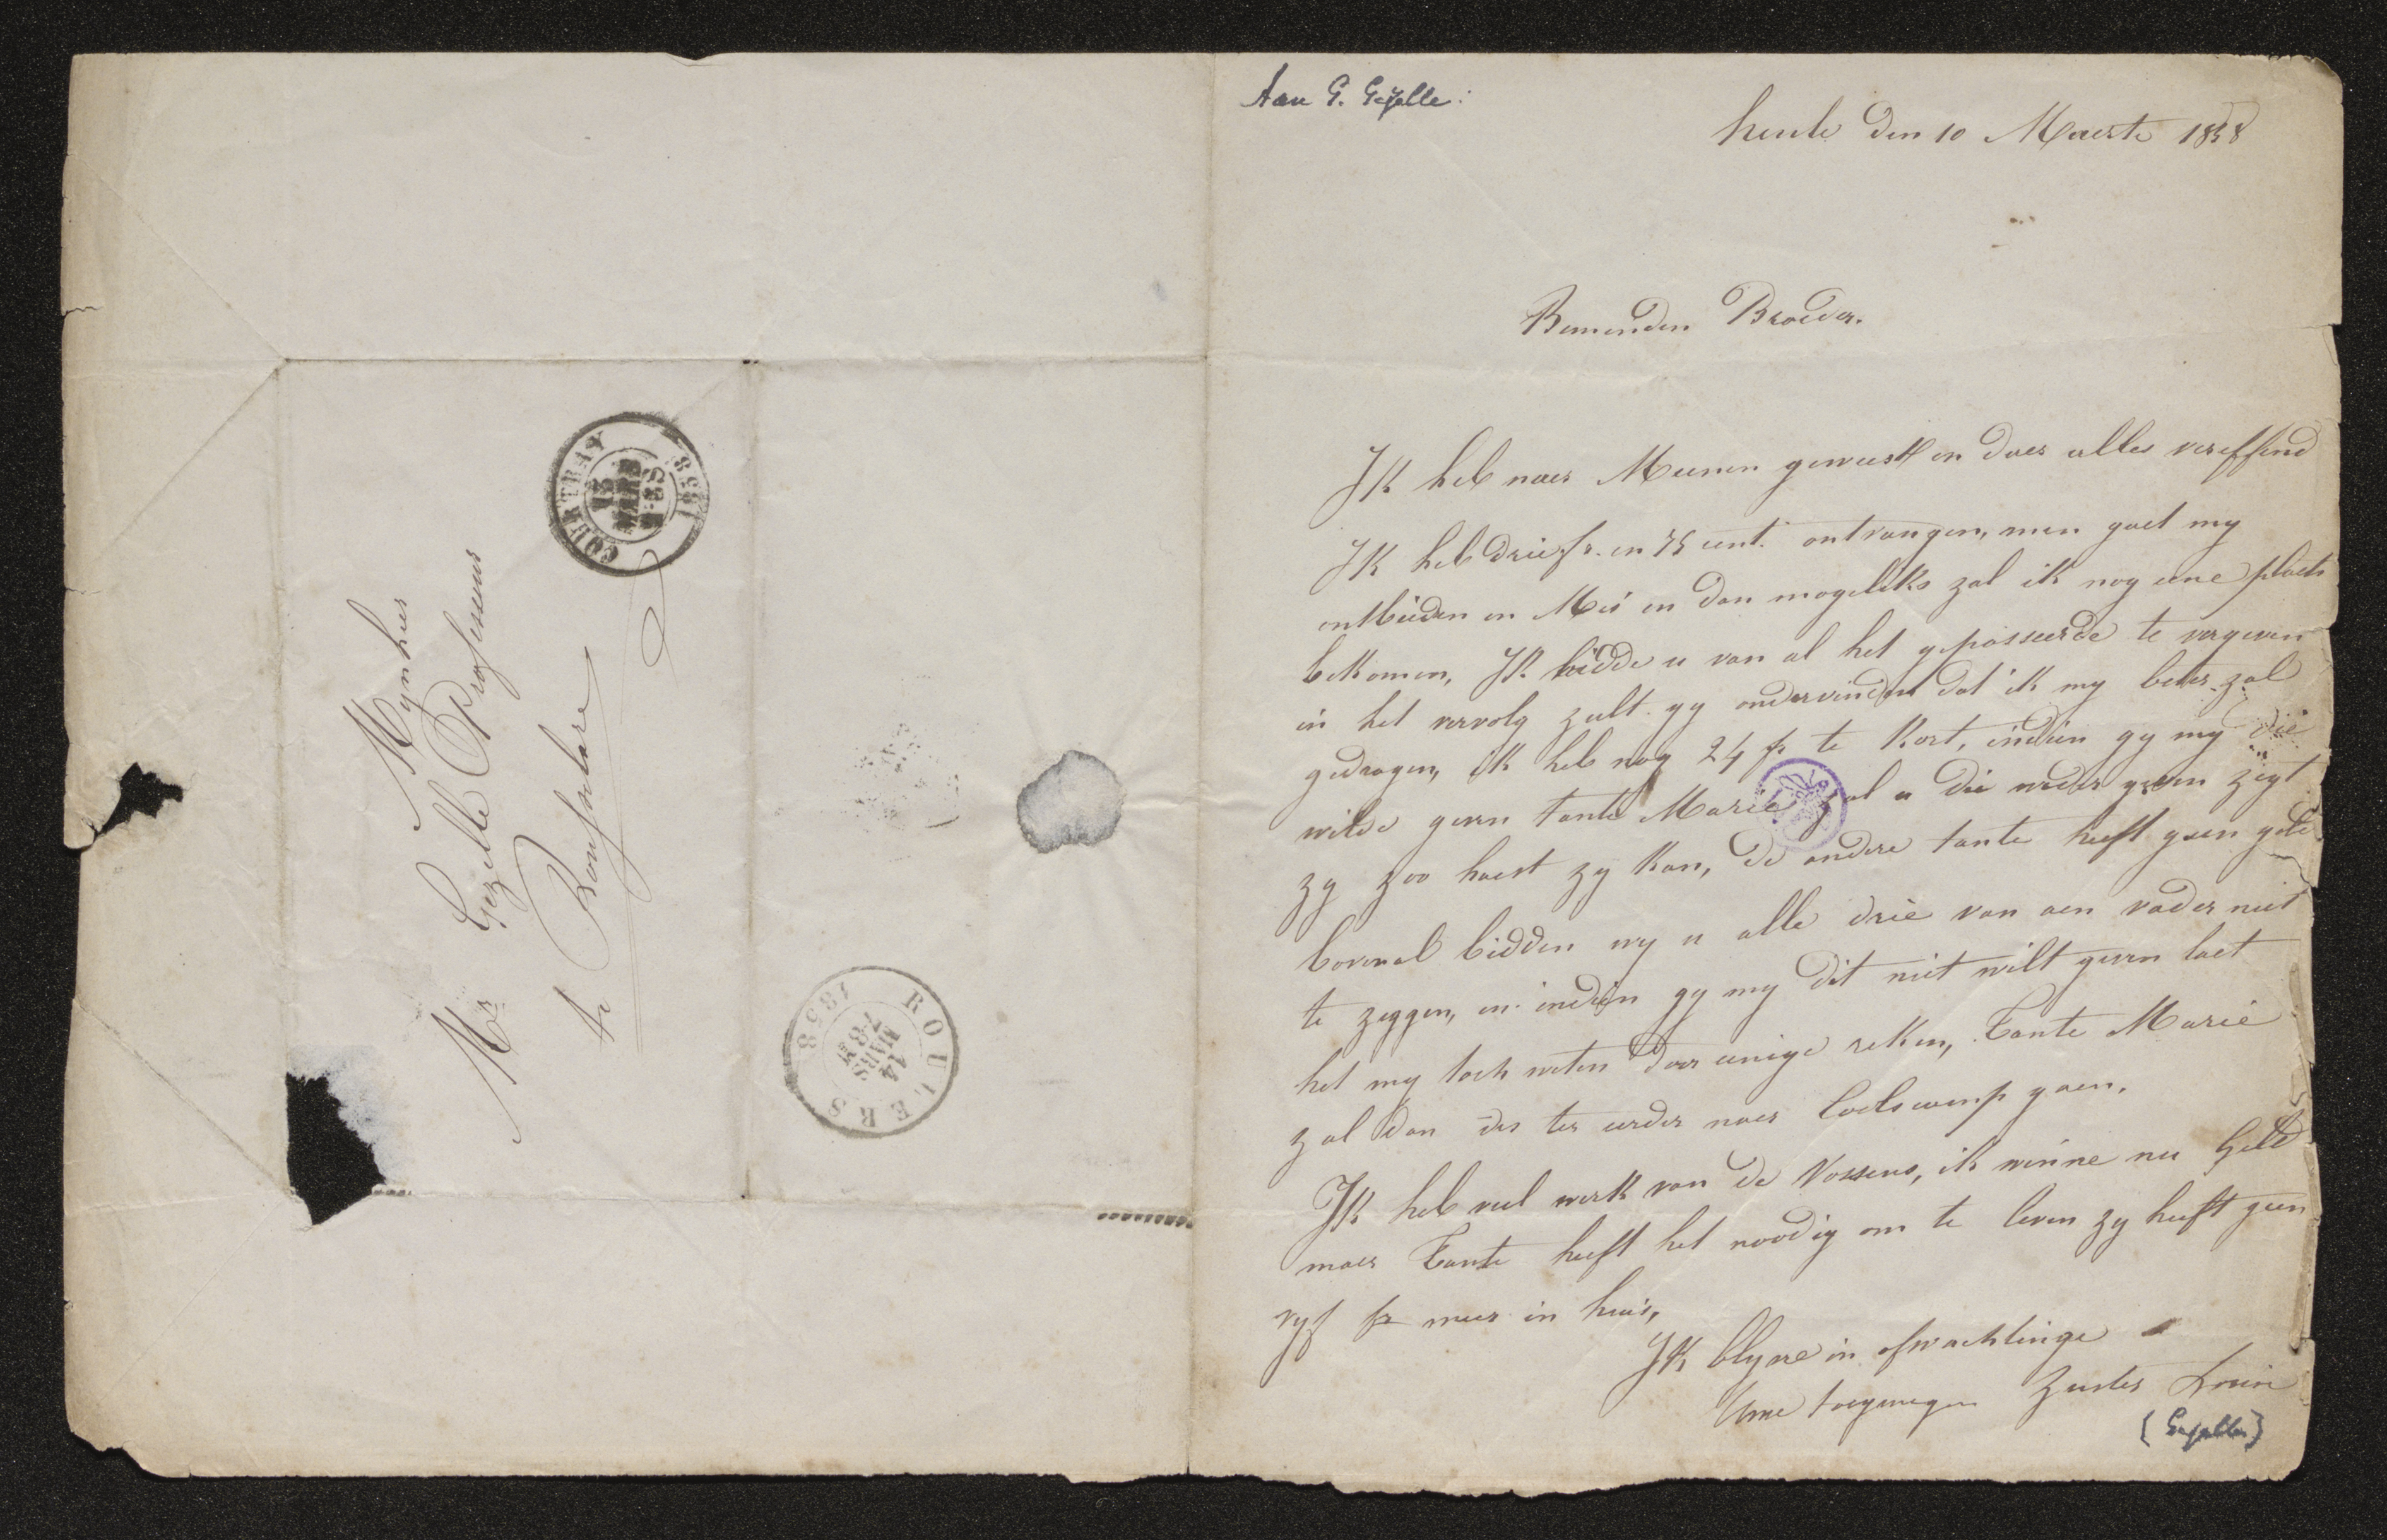 Mynheer
Mr Gezelle Professeur
te Rousselare
COURTRAY
13
MARS
1858
ROULERS
14
MARS
7-8 M
1858
Aan G. Gezelle:
heule den 10 Maerte 1858
Beminden Broeder.
Ik heb naer Meenen geweest en daer alles vereffend
Ik heb drie fr. en 75 cent. ontvangen, men gaet my
ontbieden in Mei en dan mogelyks zal ik nog eene plaets
bekomen, Ik bidde u van al het gepasseerde te vergeven
in het vervolg zult gy ondervinden dat ik my beter zal
gedragen, ik heb nog 24 fr te kort, indien gy my die
wilde geven tante Marie zal u die weder geven zegt
zy zoo haest zy kan, de andere tante heeft geen geld
bovenal bidden wy u alle drie van aen vader niet
te zeggen, en indien gy my dit niet wilt geven laet
het my toch weten door eenige reken, Tante Marie
zal dan des ter eerder naer Coolscamp gaen.
Ik heb veel werk van de Vossens, ik winne nu geld
maer Tante heeft het noodig om te leven zy heeft geen
vyf fr meer in huis,
Ik blyve in afwachtinge
Uwe toegenegen Zuster Louise
(Gezelle)